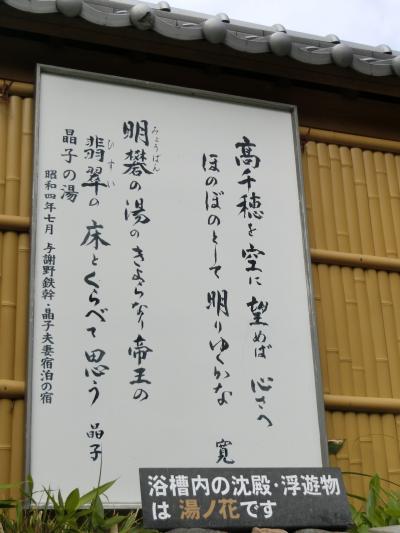 高千穂を空に望めば心さへ
ほのぼのとして明りゆくかな
寛
明礬の湯のきよらなり帝王の
みょうばん
翡翠の床とくらべて思う
ひすい
晶子
晶子の湯
昭和四年七月 与謝野鉄幹・晶子夫妻宿泊の宿
浴槽内の沈殿・浮遊物
は 湯ノ花です